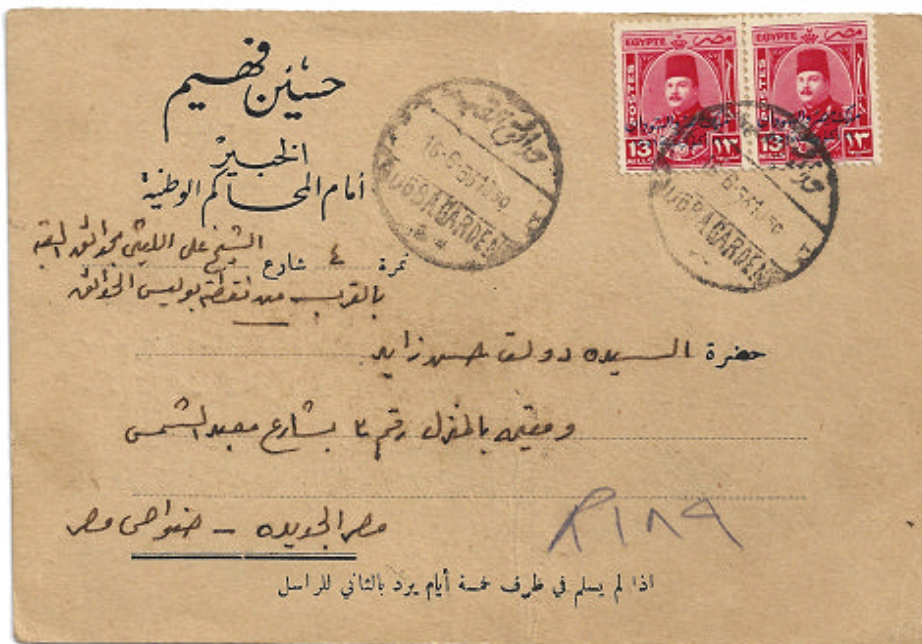 حسين فهيم
الخبير
أمام المحاكم الوطنية
نمرة ٤ شارع الشيخ على الليثى بحدائق القبه
بالقرب من نقطة بوليس الحدائق
EGYPTE مصر
POSTES
13 MILLS ١٣
EGYPTE مصر
POSTES
13 MILLS ١٣
حدائق القبه
KUBBA GARDENS
حدائق القبه
KUBBA GARDENS
حضرة السيده دولت حسن زايد
ومقيمه بالمنزل رقم بشارع معبد الشمس
مصر الجديده – ضواحى مصر
R ١٨٩
اذا لم يسلم في ظرف خمسة أيام يرد بالثاني للراسل